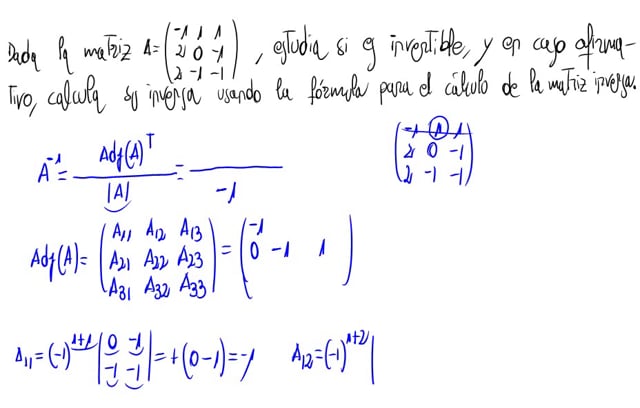 Dada la matriz A = (-1 1 1
2 0 -1
2 -1 -1) , estudia si es invertible, y en caso afirma-
tivo, calcula su inversa usando la fórmula para el cálculo de la matriz inversa.
A^-1 = Adj(A)^T / |A| = / -1
(-1 1 1
2 0 -1
2 -1 -1)
Adj(A) = (A11 A12 A13
A21 A22 A23
A31 A32 A33) = (-1
0 -1 1)
A11 = (-1)^1+1 |0 -1
-1 -1| = +(0-1) = -1 A12 = (-1)^1+2 |